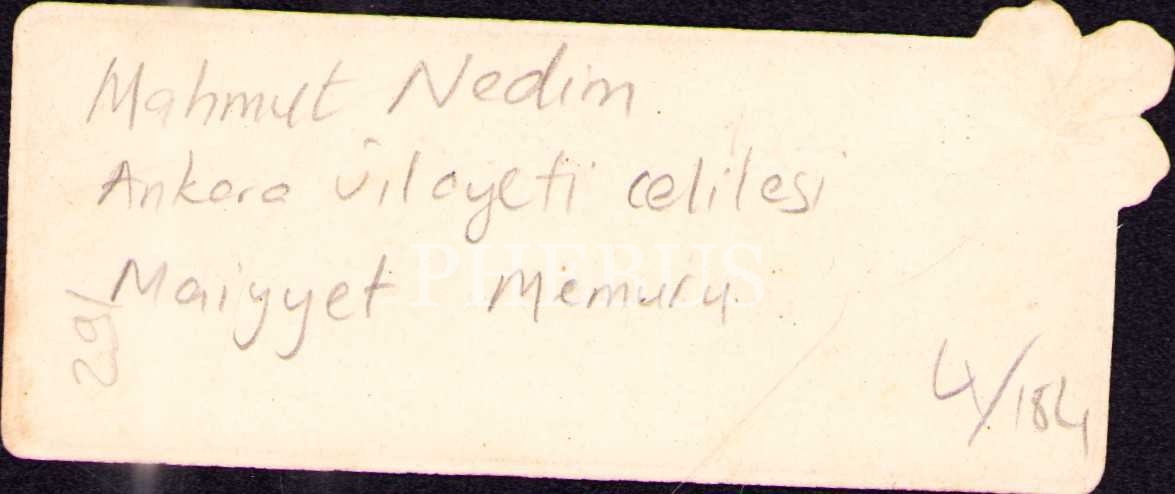 Mahmut Nedim
Ankara vilayeti celilesi
Maiyyet Memuru
PHEBUS
291
4/184